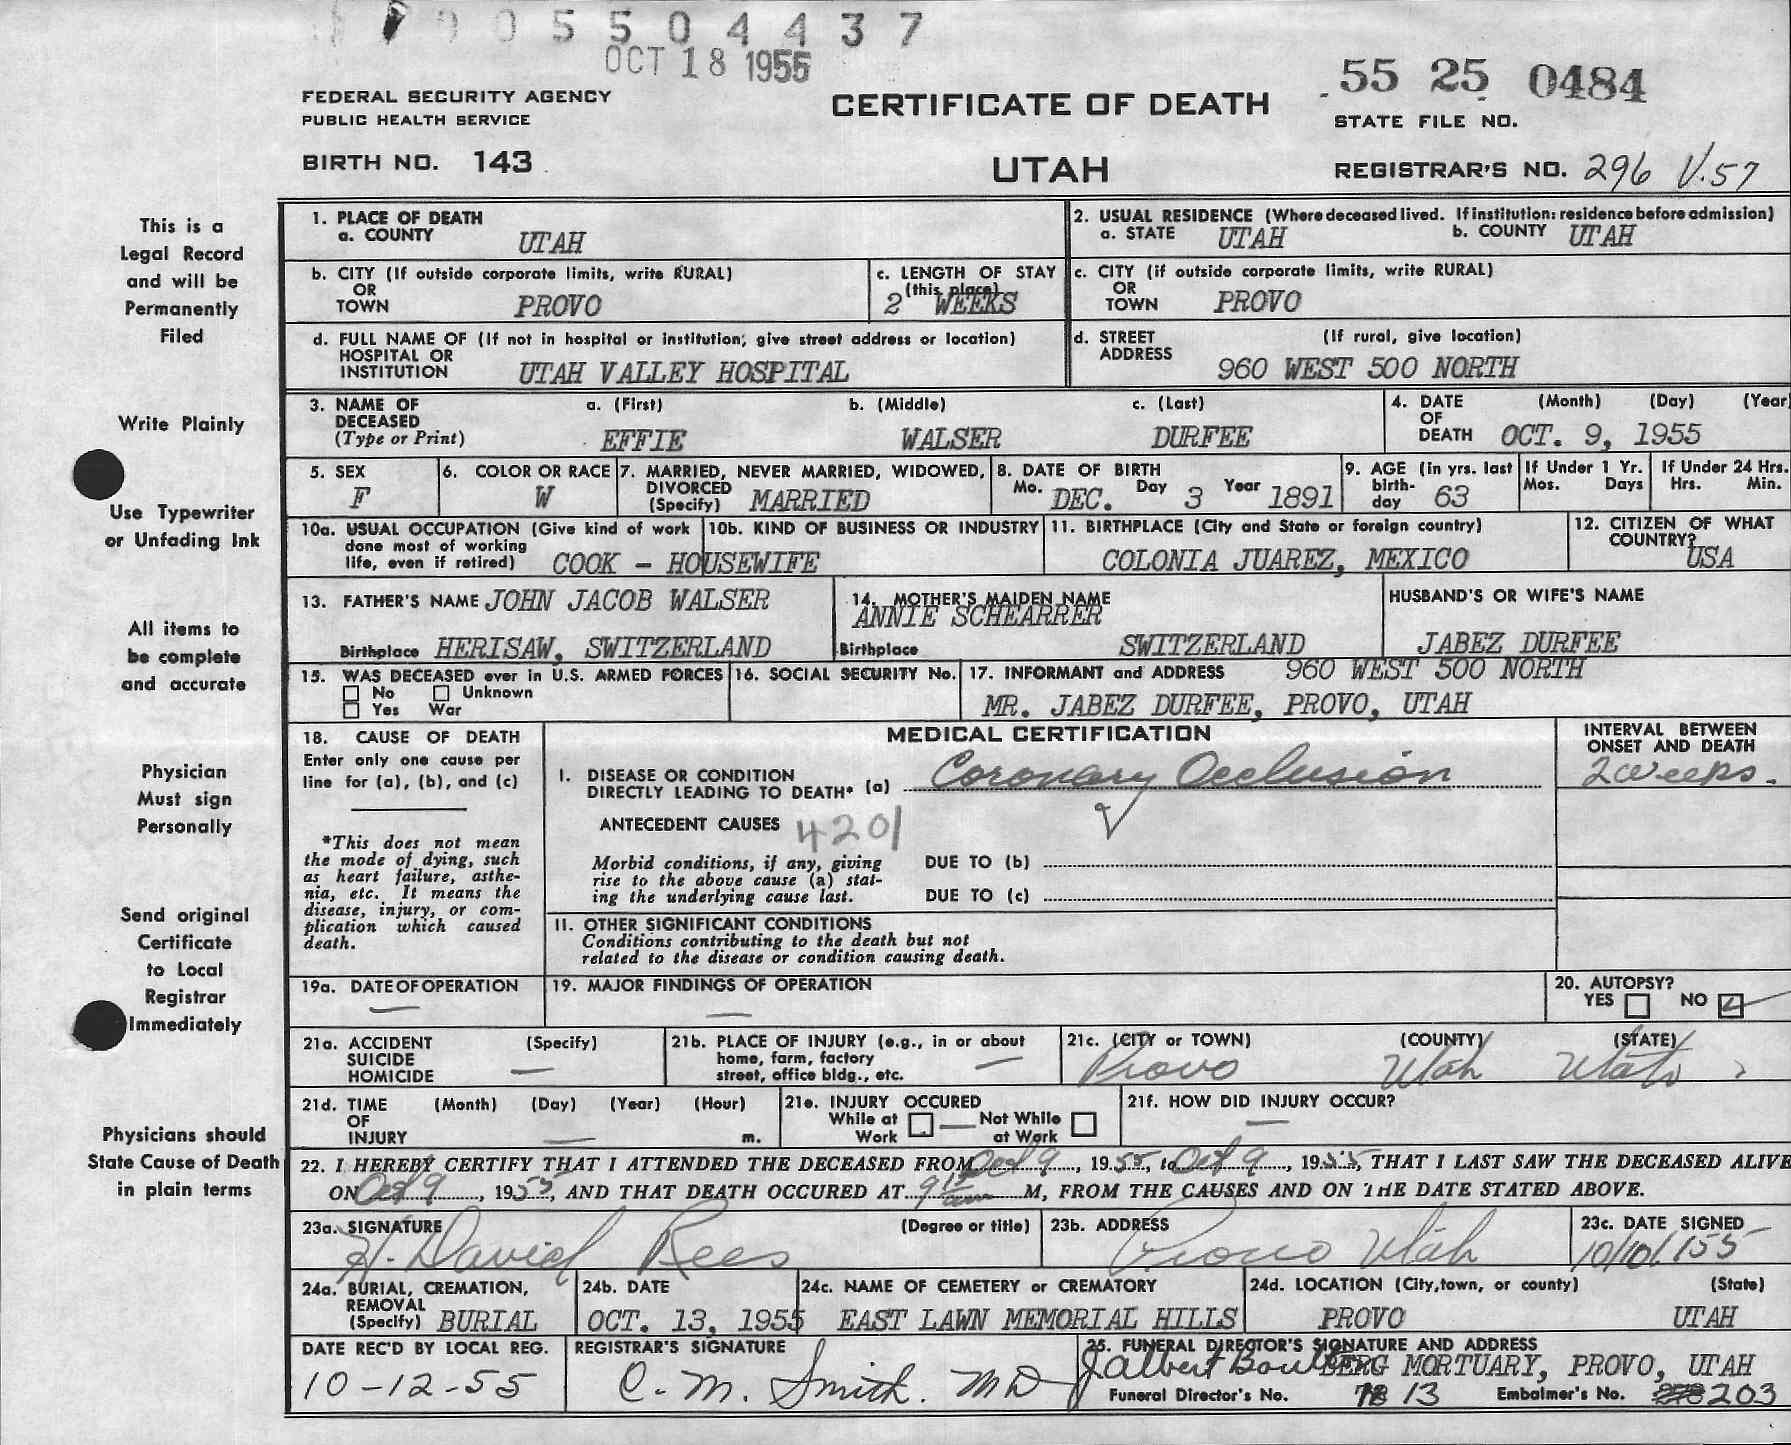 5 5 0 4 4 3 7
OCT 18 1955
55 25 0484
FEDERAL SECURITY AGENCY
PUBLIC HEALTH SERVICE
CERTIFICATE OF DEATH
STATE FILE NO.
BIRTH NO. 143
UTAH
REGISTRAR'S NO. 296 V.57
This is a
Legal Record
and will be
Permanently
Filed
Write Plainly
Use Typewriter
or Unfading Ink
All items to
be complete
and accurate
Physician
Must sign
Personally
Send original
Certificate
to Local
Registrar
Immediately
Physicians should
State Cause of Death
in plain terms
1. PLACE OF DEATH
a. COUNTY UTAH
2. USUAL RESIDENCE (Where deceased lived. If institution: residence before admission)
a. STATE UTAH b. COUNTY UTAH
b. CITY (If outside corporate limits, write RURAL)
OR
TOWN PROVO
c. LENGTH OF STAY
(this place)
2 WEEKS
c. CITY (if outside corporate limits, write RURAL)
OR
TOWN PROVO
d. FULL NAME OF (If not in hospital or institution, give street address or location)
HOSPITAL OR
INSTITUTION UTAH VALLEY HOSPITAL
d. STREET (If rural, give location)
ADDRESS
960 WEST 500 NORTH
3. NAME OF a. (First) b. (Middle) c. (Last)
DECEASED
(Type or Print) EFFIE WALSER DURFEE
4. DATE (Month) (Day) (Year)
OF
DEATH OCT. 9, 1955
5. SEX
F
6. COLOR OR RACE
W
7. MARRIED, NEVER MARRIED, WIDOWED,
DIVORCED
(Specify) MARRIED
8. DATE OF BIRTH
Mo. DEC. Day 3 Year 1891
9. AGE (in yrs. last
birth-
day 63
If Under 1 Yr.
Mos. Days
If Under 24 Hrs.
Hrs. Min.
10a. USUAL OCCUPATION (Give kind of work
done most of working
life, even if retired) COOK - HOUSEWIFE
10b. KIND OF BUSINESS OR INDUSTRY
11. BIRTHPLACE (City and State or foreign country)
COLONIA JUAREZ, MEXICO
12. CITIZEN OF WHAT
COUNTRY?
USA
13. FATHER'S NAME JOHN JACOB WALSER
Birthplace HERISAW, SWITZERLAND
14. MOTHER'S MAIDEN NAME
ANNIE SCHEARRER
Birthplace SWITZERLAND
HUSBAND'S OR WIFE'S NAME
JABEZ DURFEE
15. WAS DECEASED ever in U.S. ARMED FORCES
No Unknown
Yes War
16. SOCIAL SECURITY No.
17. INFORMANT and ADDRESS 960 WEST 500 NORTH
MR. JABEZ DURFEE, PROVO, UTAH
18. CAUSE OF DEATH
Enter only one cause per
line for (a), (b), and (c)
*This does not mean
the mode of dying, such
as heart failure, asthe-
nia, etc. It means the
disease, injury, or com-
plication which caused
death.
MEDICAL CERTIFICATION
INTERVAL BETWEEN
ONSET AND DEATH
I. DISEASE OR CONDITION
DIRECTLY LEADING TO DEATH* (a) Coronary Occlusion 2 weeks.
ANTECEDENT CAUSES 4201
Morbid conditions, if any, giving
rise to the above cause (a) stat-
ing the underlying cause last.
DUE TO (b)
DUE TO (c)
II. OTHER SIGNIFICANT CONDITIONS
Conditions contributing to the death but not
related to the disease or condition causing death.
19a. DATE OF OPERATION
—
19. MAJOR FINDINGS OF OPERATION
—
20. AUTOPSY?
YES NO ✓
21a. ACCIDENT (Specify)
SUICIDE
HOMICIDE —
21b. PLACE OF INJURY (e.g., in or about
home, farm, factory
street, office bldg., etc. —
21c. (CITY or TOWN) (COUNTY) (STATE)
Provo Utah Utah
21d. TIME (Month) (Day) (Year) (Hour)
OF
INJURY — m.
21e. INJURY OCCURED
While at Not While
Work — at Work
21f. HOW DID INJURY OCCUR?
—
22. I HEREBY CERTIFY THAT I ATTENDED THE DECEASED FROM Oct 9, 1955, to Oct 9, 1955, THAT I LAST SAW THE DECEASED ALIVE
ON Oct 9, 1955, AND THAT DEATH OCCURED AT 9 15 am M, FROM THE CAUSES AND ON THE DATE STATED ABOVE.
23a. SIGNATURE (Degree or title)
H. David Rees
23b. ADDRESS
Provo Utah
23c. DATE SIGNED
10/10/55
24a. BURIAL, CREMATION,
REMOVAL
(Specify) BURIAL
24b. DATE
OCT. 13, 1955
24c. NAME OF CEMETERY or CREMATORY
EAST LAWN MEMORIAL HILLS
24d. LOCATION (City,town, or county) (State)
PROVO UTAH
DATE REC'D BY LOCAL REG.
10-12-55
REGISTRAR'S SIGNATURE
C. M. Smith. MD
25. FUNERAL DIRECTOR'S SIGNATURE AND ADDRESS
BERG MORTUARY, PROVO, UTAH
Funeral Director's No. 13 Embalmer's No. 203